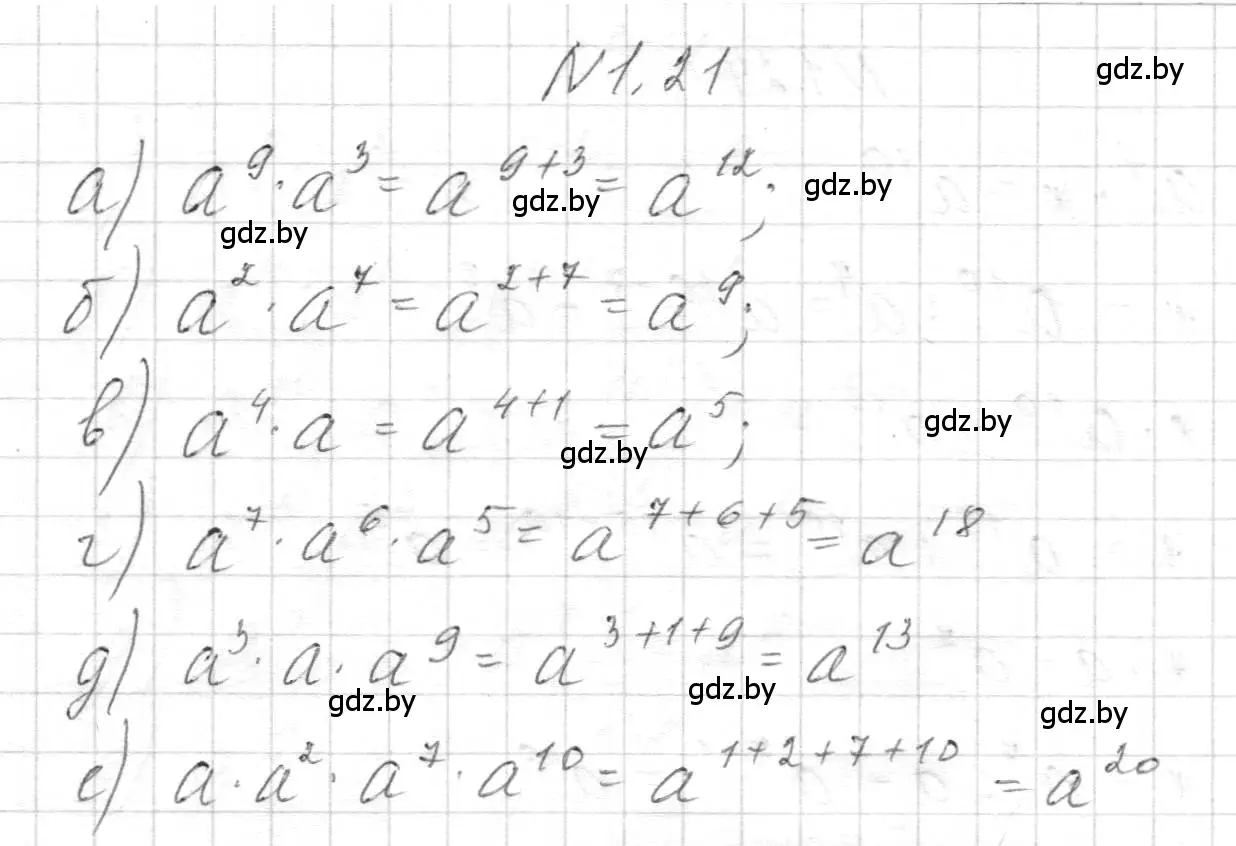 N 1.21 gdz.by
а) a⁹ · a³ = a⁹⁺³ = a¹²; gdz.by gdz.by gdz.by
б) a² · a⁷ = a²⁺⁷ = a⁹;
в) a⁴ · a = a⁴⁺¹ = a⁵; gdz.by gdz.by
г) a⁷ · a⁶ · a⁵ = a⁷⁺⁶⁺⁵ = a¹⁸
д) a³ · a · a⁹ = a³⁺¹⁺⁹ = a¹³ gdz.by gdz.by gdz.by
е) a · a² · a⁷ · a¹⁰ = a¹⁺²⁺⁷⁺¹⁰ = a²⁰